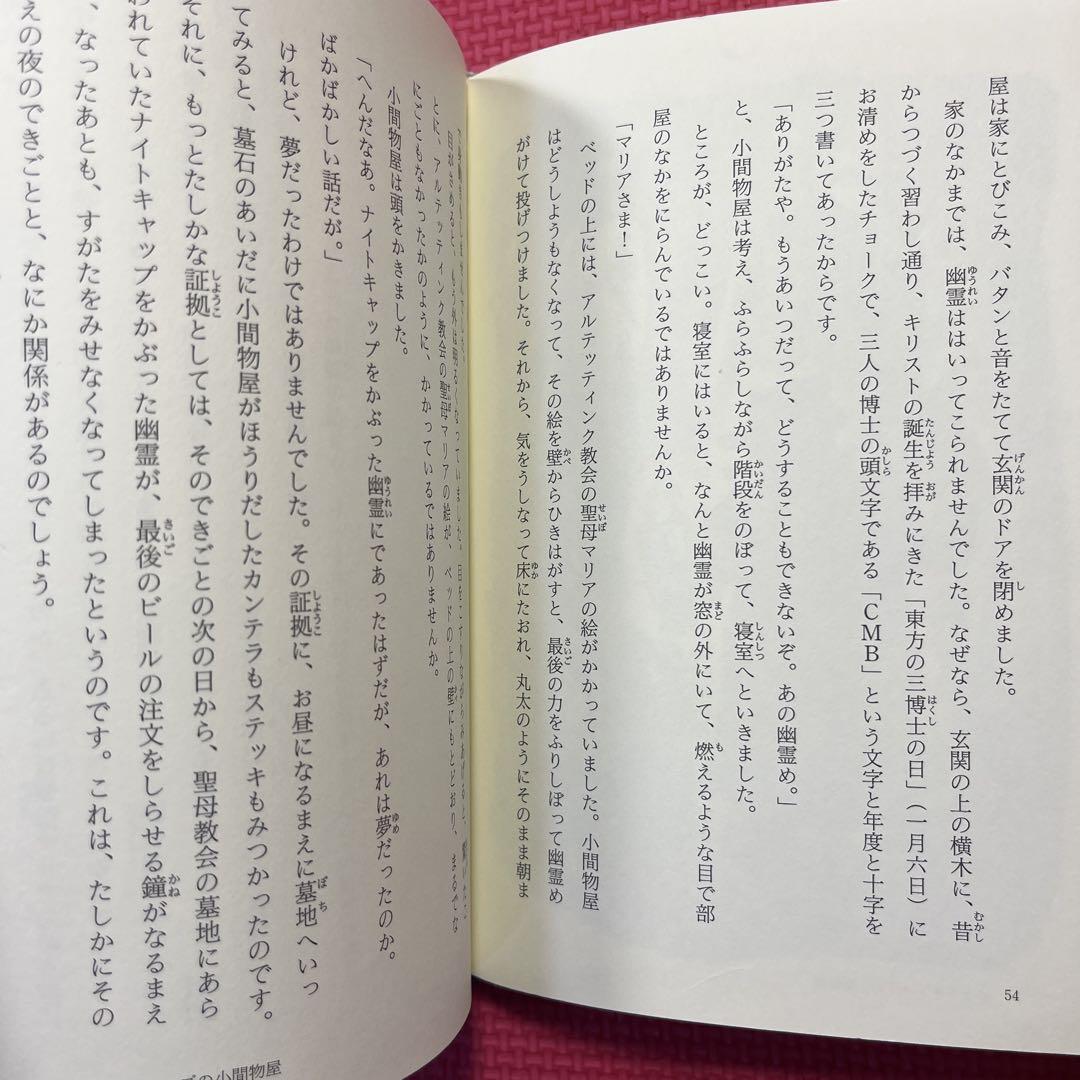 屋は家にとびこみ、バタンと音をたてて玄関のドアを閉めました。
家のなかまでは、幽霊ははいってこられませんでした。なぜなら、玄関の上の横木に、昔
からつづく習わし通り、キリストの誕生を拝みにきた「東方の三博士の日」(一月六日)に
お清めをしたチョークで、三人の博士の頭文字である「CMB」という文字と年度と十字を
三つ書いてあったからです。
「ありがたや。もうあいつだって、どうすることもできないぞ。あの幽霊め。」
と、小間物屋は考え、ふらふらしながら階段をのぼって、寝室へといきました。
ところが、どっこい。寝室にはいると、なんと幽霊が窓の外にいて、燃えるような目で部
屋のなかをにらんでいるではありませんか。
「マリアさま!」
ベッドの上には、アルテッティンク教会の聖母マリアの絵がかかっていました。小間物屋
はどうしようもなくなって、その絵を壁からひきはがすと、最後の力をふりしぼって幽霊め
がけて投げつけました。それから、気をうしなって床にたおれ、丸太のようにそのまま朝ま
54
目がさめると、もう外は明るくなっていました。目をこすりながらみあげると、
とに、アルテッティンク教会の聖母マリアの絵が、ベッドの上の壁にもとどおり、まるでな
にごともなかったかのように、かかっているではありませんか。
小間物屋は頭をかきました。
「へんだなあ。ナイトキャップをかぶった幽霊にであったはずだが、あれは夢だったのか。
ばかばかしい話だが。」
けれど、夢だったわけではありませんでした。その証拠に、お昼になるまえに墓地へいっ
てみると、墓石のあいだに小間物屋がほうりだしたカンテラもステッキもみつかったのです。
それに、もっとたしかな証拠としては、そのできごとの次の日から、聖母教会の墓地にあら
われていたナイトキャップをかぶった幽霊が、最後のビールの注文をしらせる鐘がなるまえ
、なったあとも、すがたをみせなくなってしまったというのです。これは、たしかにその
えの夜のできごとと、なにか関係があるのでしょう。
の小間物屋